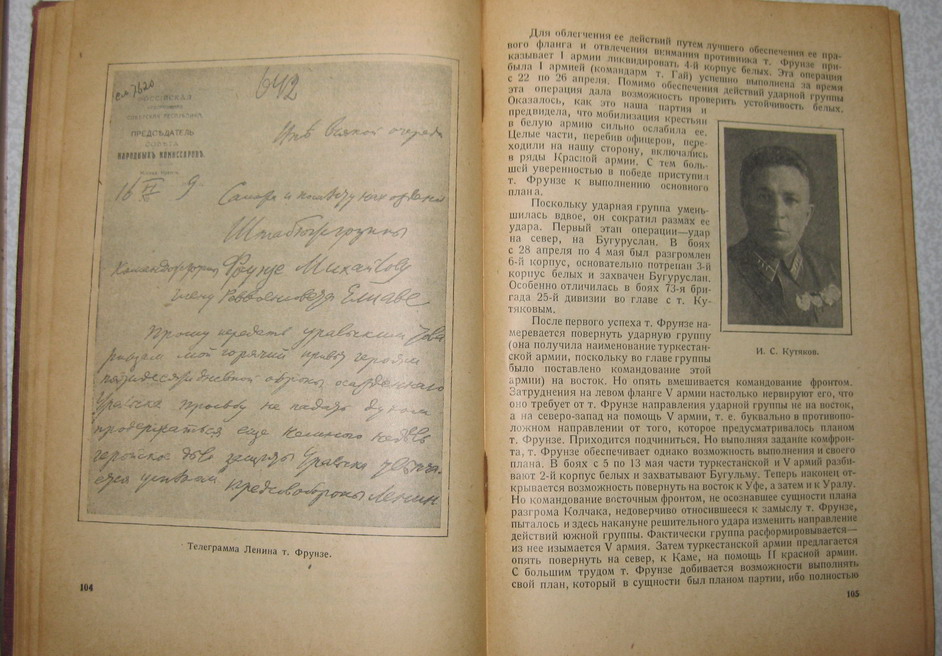 642
РОССИЙСКАЯ
СОВЕТСКАЯ РЕСПУБЛИКА
ПРЕДСЕДАТЕЛЬ
СОВЕТА
НАРОДНЫХЪ КОМИССАРОВЪ.
Внѣ всякой очереди
16 VI 9
Самара
Фрунзе Михайлову
Элиаве
Прошу передать уральским това
рищам мой горячий привет героям
пятидесятидневной обороны осажденного
Уральска просьбу не падать духом
продержаться еще немного недель
геройское дело защиты Уральска увенча
ется успехом Предсовобороны Ленин
Телеграмма Ленина т. Фрунзе.
104
Для облегчения ее действий путем лучшего обеспечения ее пра-
вого фланга и отвлечения внимания противника т. Фрунзе при-
казывает I армии ликвидировать 4-й корпус белых. Эта операция
была I армией (командарм т. Гай) успешно выполнена за время
с 22 по 26 апреля. Помимо обеспечения действий ударной группы
эта операция дала возможность проверить устойчивость белых.
Оказалось, как это наша партия и
предвидела, что мобилизация крестьян
в белую армию сильно ослабила ее.
Целые части, перебив офицеров, пере-
ходили на нашу сторону, включались
в ряды Красной армии. С тем боль-
шей уверенностью в победе приступил
т. Фрунзе к выполнению основного
плана.
Поскольку ударная группа умень-
шилась вдвое, он сократил размах ее
удара. Первый этап операции—удар
на север, на Бугуруслан. В боях
с 28 апреля по 4 мая был разгромлен
6-й корпус, основательно потрепан 3-й
корпус белых и захвачен Бугуруслан.
Особенно отличилась в боях 73-я бри-
гада 25-й дивизии во главе с т. Ку-
тяковым.
После первого успеха т. Фрунзе на-
меревается повернуть ударную группу
(она получила наименование туркестан-
ской армии, поскольку во главе группы
было поставлено командование этой
армии) на восток. Но опять вмешивается командование фронтом.
Затруднения на левом фланге V армии настолько нервируют его, что
оно требует от т. Фрунзе направления ударной группы не на восток,
а на северо-запад на помощь V армии, т. е. буквально в противопо-
ложном направлении от того, которое предусматривалось планом
т. Фрунзе. Приходится подчиниться. Но выполняя задание комфрон-
та, т. Фрунзе обеспечивает однако возможность выполнения и своего
плана. В боях с 5 по 13 мая части туркестанской и V армий разби-
вают 2-й корпус белых и захватывают Бугульму. Теперь наконец от-
крывается возможность повернуть на восток к Уфе, а затем и к Уралу.
Но командование восточным фронтом, не осознавшее сущности плана
разгрома Колчака, недоверчиво относившееся к замыслу т. Фрунзе,
пыталось и здесь накануне решительного удара изменить направление
действий южной группы. Фактически группа расформировывается—
из нее изымается V армия. Затем туркестанской армии предлагается
опять повернуть на север, к Каме, на помощь II красной армии.
С большим трудом т. Фрунзе добивается возможности выполнять
свой план, который в сущности был планом партии, ибо полностью
И. С. Кутяков.
105